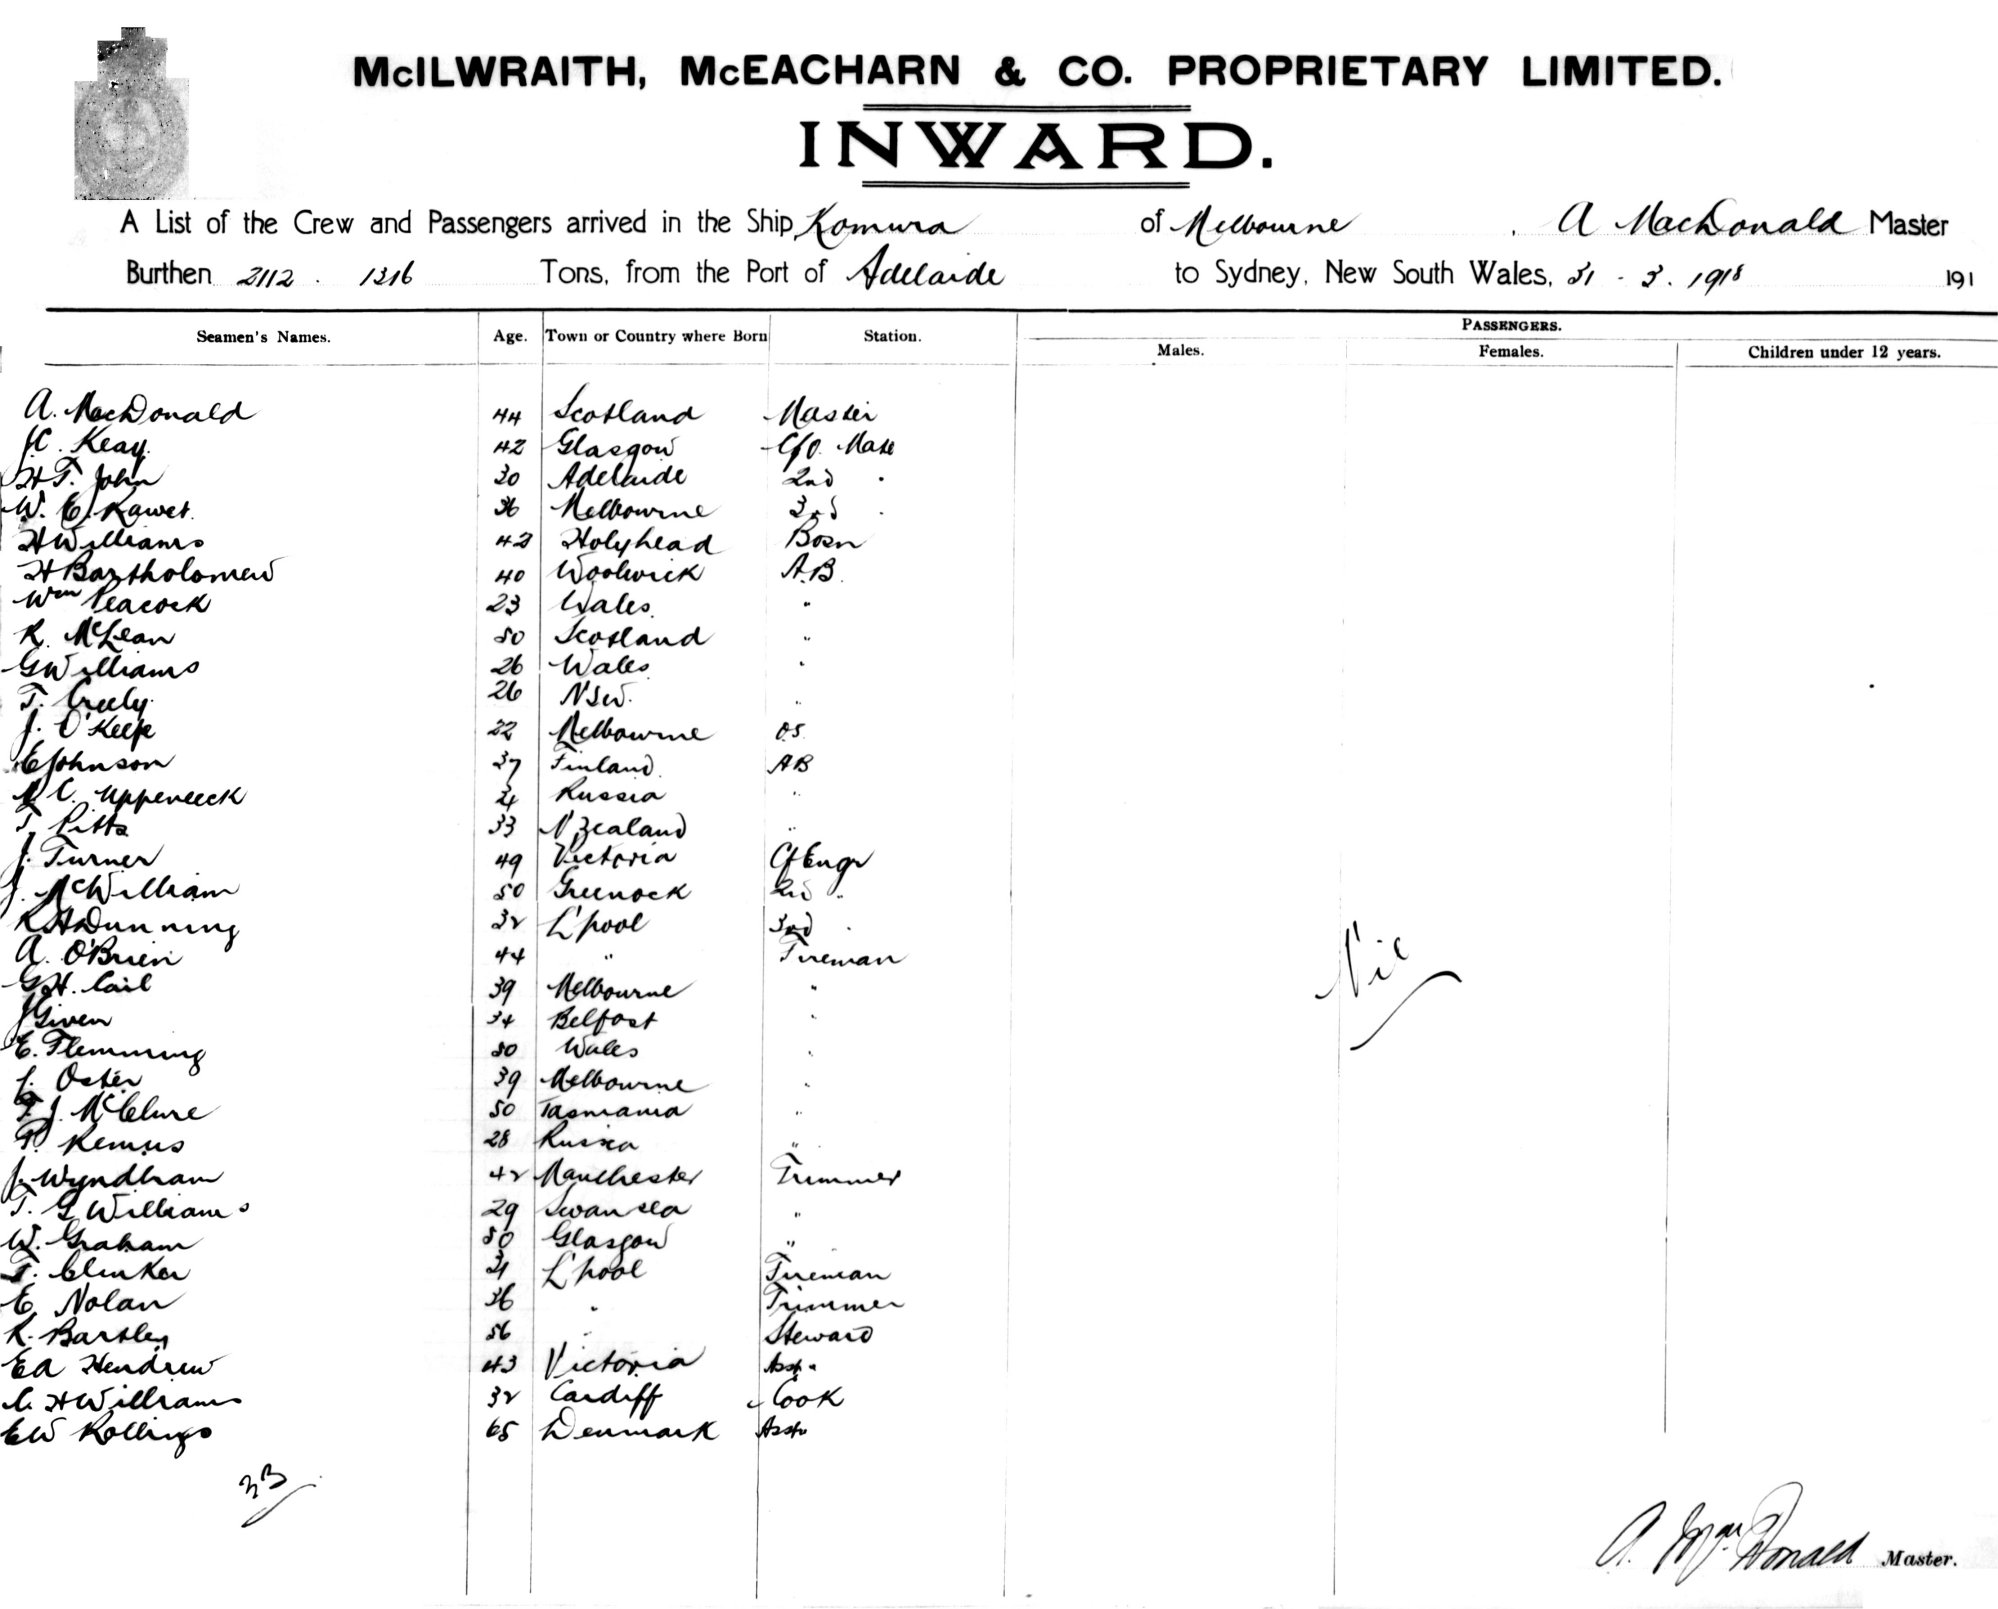 McILWRAITH, McEACHARN & CO. PROPRIETARY LIMITED.
INWARD.
A List of the Crew and Passengers arrived in the Ship Komura of Melbourne, A MacDonald Master
Burthen 2112. 1316 Tons, from the Port of Adelaide to Sydney, New South Wales, 31 - 3. 1918 191
Seamen's Names. Age. Town or Country where Born Station. PASSENGERS.
Males. Females. Children under 12 years.
A. MacDonald 44 Scotland Master
J.C. Keay 42 Glasgow Mate
H T. John 30 Adelaide 2nd "
W. E. 36 Melbourne 3rd "
H Williams 42 Holyhead Bosn
H Bartholomew 40 Woolwick A.B.
Wm Peacock 23 Wales "
R. McLean 50 Scotland "
G Williams 26 Wales "
T. Creely 26 NSW. "
J. O'Keefe 22 Melbourne O.S.
E Johnson 37 Finland AB
C. Russia "
T. Pitts 33 N Zealand "
J. Turner 49 Victoria Cf Engr
J. McWilliam 50 Greenock 2nd "
R H Dunning 32 L'pool 3rd "
A. O'Brien 44 " Fireman
G.H. Cail 39 Melbourne "
J Given 34 Belfast "
E. Flemming 50 Wales "
Oster 39 Melbourne "
T. J. McClure 50 Tasmania "
P. Remus 28 Russia "
J. Wyndham 42 Manchester Trimmer
T. G Williams 29 Swansea "
W. Graham 50 Glasgow "
T. Clinker 31 L'pool Fireman
E. Nolan 36 " Trimmer
R. Bartley 56 " Steward
Ed Hendrew 43 Victoria Asst "
C. H Williams 32 Cardiff Cook
EW Rollings 65 Denmark Asst
Nil
33
A. MacDonald Master.